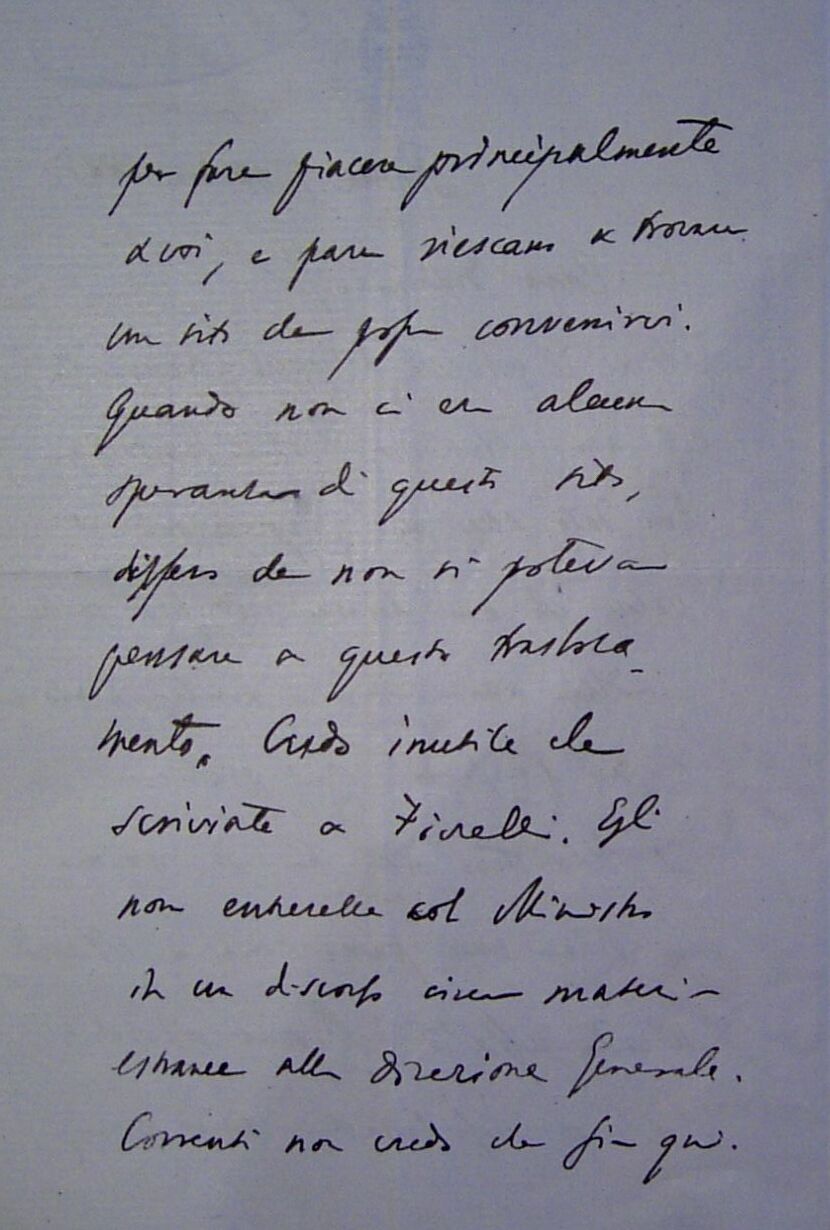 per fare piacere principalmente
a voi, e pare riescano a trovare
un sito da possa convenirvi.
Quando non ci era alcuna
speranza di questi siti,
dissero che non si poteva
pensare a questo trasloca-
mento. Credo inutile che
scriviate a Fiorelli. Egli
non entrerebbe col Ministro
in un discorso circa materie
estranee alla direzione Generale.
Correnti non credo che sia qui.